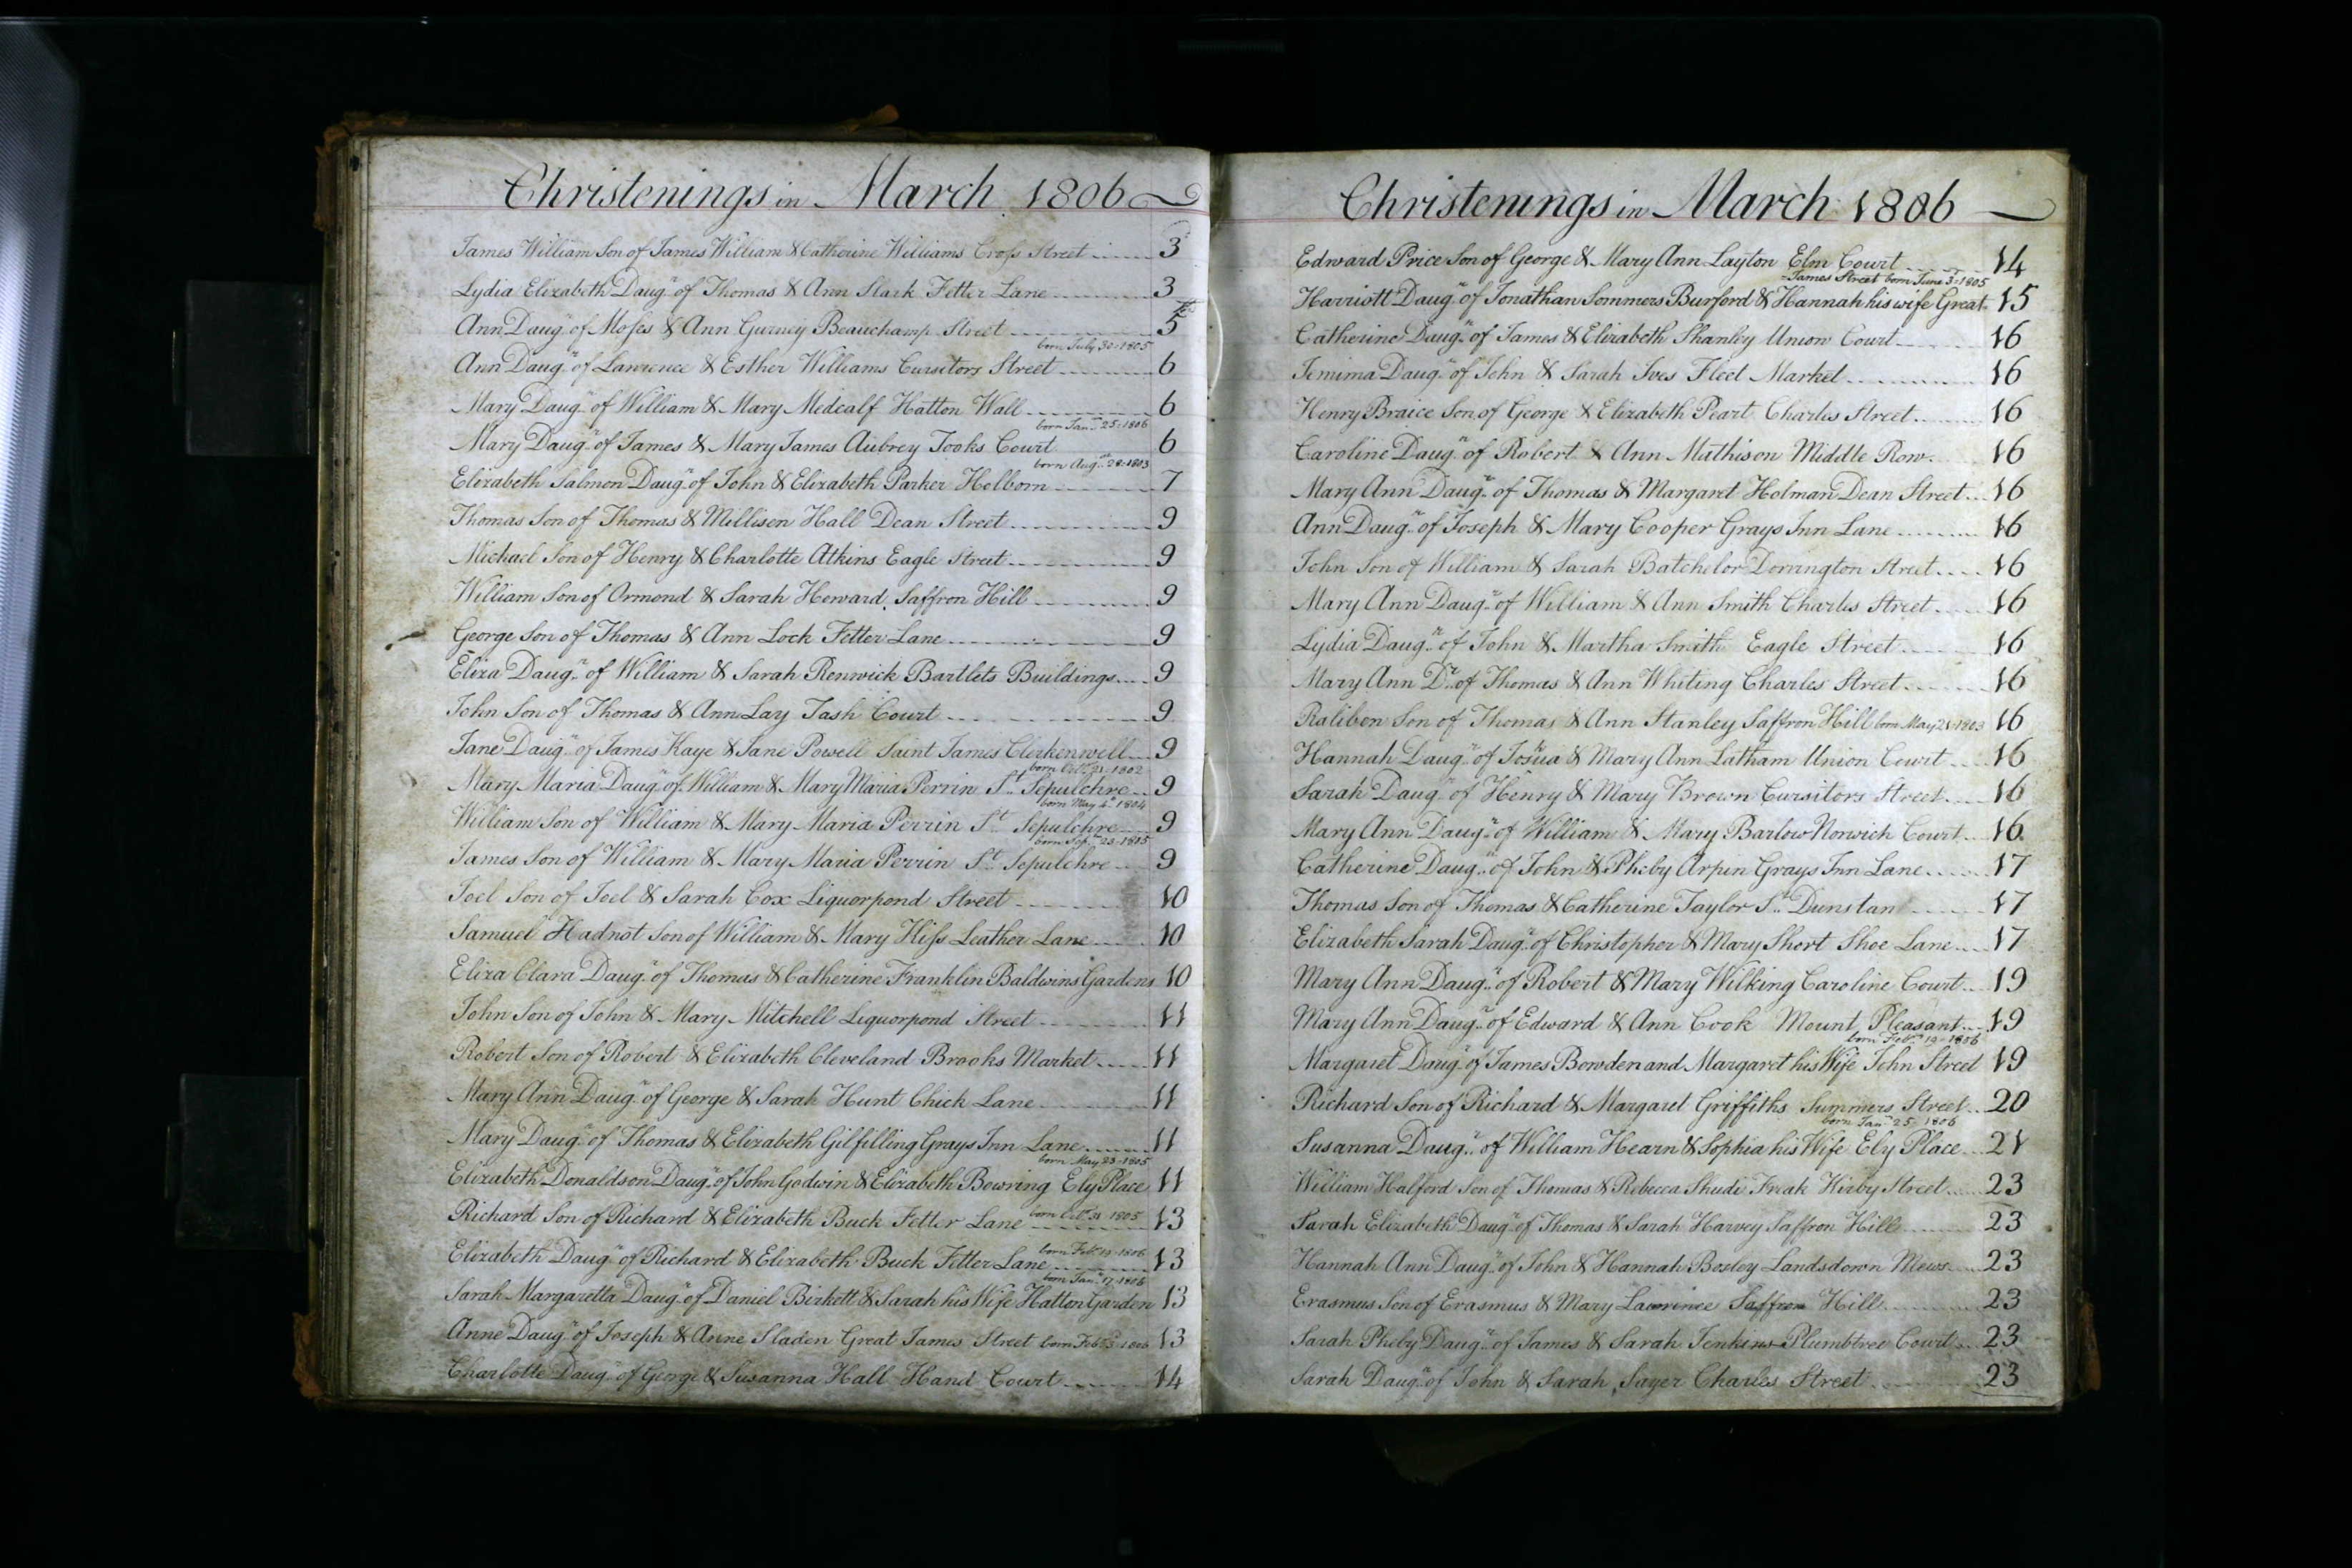 Christenings in March 1806
James William Son of James William & Catherine Williams Cross Street 3
Lydia Elizabeth Daugr. of Thomas & Ann Slark Fetter Lane 3
Ann Daugr. of Moses & Ann Gurney Beauchamp Street 5
born July 30 1805
Ann Daugr. of Lawrence & Esther Williams Cursitors Street 6
Mary Daugr. of William & Mary Medcalf Hatton Wall 6
born Jany. 25 1806
Mary Daugr. of James & Mary James Aubrey Tooks Court 6
born Augst. 28 1803
Elizabeth Salmon Daugr. of John & Elizabeth Parker Holborn 7
Thomas Son of Thomas & Millisen Hall Dean Street 9
Michael Son of Henry & Charlotte Atkins Eagle Street 9
William Son of Ormond & Sarah Howard Saffron Hill 9
George Son of Thomas & Ann Lock Fetter Lane 9
Eliza Daugr. of William & Sarah Renwick Bartlets Buildings 9
John Son of Thomas & Ann Lay Tash Court 9
Jane Daugr. of James Kaye & Jane Powell Saint James Clerkenwell 9
born Octr. 21 1802
Mary Maria Daugr. of William & Mary Maria Perrin St. Sepulchre 9
born May 4th 1804
William Son of William & Mary Maria Perrin St. Sepulchre 9
born Sepr. 23 1805
James Son of William & Mary Maria Perrin St. Sepulchre 9
Joel Son of Joel & Sarah Cox Liquorpond Street 10
Samuel Hadnot Son of William & Mary Hiss Leather Lane 10
Eliza Clara Daugr. of Thomas & Catherine Franklin Baldwins Gardens 10
John Son of John & Mary Mitchell Liquorpond Street 11
Robert Son of Robert & Elizabeth Cleveland Brooks Market 11
Mary Ann Daugr. of George & Sarah Hunt Chick Lane 11
Mary Daugr. of Thomas & Elizabeth Gilfilling Grays Inn Lane 11
born May 23 1805
Elizabeth Donaldson Daugr. of John Godwin & Elizabeth Bowring Ely Place 11
Richard Son of Richard & Elizabeth Buck Fetter Lane born Octr. 31 1805 13
Elizabeth Daugr. of Richard & Elizabeth Buck Fetter Lane born Feby. 1806 13
born Jany. 17 1806
Sarah Margaretta Daugr. of Daniel Birkett & Sarah his Wife Hatton Garden 13
Anne Daugr. of Joseph & Anne Sladen Great James Street born Feby. 3 1806 13
Charlotte Daugr. of George & Susanna Hall Hand Court 14
Christenings in March 1806
Edward Price Son of George & Mary Ann Layton Elm Court 14
James Street born June 3 1805
Harriott Daugr. of Jonathan Sommers Burford & Hannah his wife Great 15
Catherine Daugr. of James & Elizabeth Shanley Union Court 16
Jemima Daugr. of John & Sarah Ives Fleet Market 16
Henry Braice Son of George & Elizabeth Peart Charles Street 16
Caroline Daugr. of Robert & Ann Mathison Middle Row 16
Mary Ann Daugr. of Thomas & Margaret Holman Dean Street 16
Ann Daugr. of Joseph & Mary Cooper Grays Inn Lane 16
John Son of William & Sarah Batchelor Dorrington Street 16
Mary Ann Daugr. of William & Ann Smith Charles Street 16
Lydia Daugr. of John & Martha Smith Eagle Street 16
Mary Ann Dr. of Thomas & Ann Whiting Charles Street 16
Ralibon Son of Thomas & Ann Stanley Saffron Hill born May 21 1803 16
Hannah Daugr. of Josua & Mary Ann Latham Union Court 16
Sarah Daugr. of Henry & Mary Brown Cursitors Street 16
Mary Ann Daugr. of William & Mary Barlow Norwich Court 16
Catherine Daugr. of John & Pheby Arpin Grays Inn Lane 17
Thomas Son of Thomas & Catherine Taylor St. Dunstan 17
Elizabeth Sarah Daugr. of Christopher & Mary Short Shoe Lane 17
Mary Ann Daugr. of Robert & Mary Wilking Caroline Court 19
Mary Ann Daugr. of Edward & Ann Cook Mount Pleasant 19
born Feby. 19 1806
Margaret Daugr. of James Bowden and Margaret his Wife John Street 19
Richard Son of Richard & Margaret Griffiths Summers Street 20
born Jany. 25 1806
Susanna Daugr. of William Hearn & Sophia his Wife Ely Place 21
William Halford Son of Thomas & Rebecca Shudi Freak Kirby Street 23
Sarah Elizabeth Daugr. of Thomas & Sarah Harvey Saffron Hill 23
Hannah Ann Daugr. of John & Hannah Bosley Landsdown Mews 23
Erasmus Son of Erasmus & Mary Lawrence Saffron Hill 23
Sarah Pheby Daugr. of James & Sarah Jenkins Plumbtree Court 23
Sarah Daugr. of John & Sarah Sayer Charles Street 23